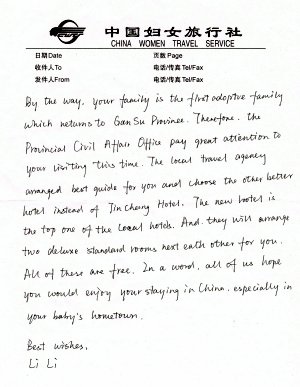 中国妇女旅行社
CHINA WOMEN TRAVEL SERVICE
日期Date 页数Page
收件人To 电话/传真Tel/Fax
发件人From 电话/传真Tel/Fax
By the way, your family is the first adoptive family
which returns to GanSu Province. Therefore. the
Provincial Civil Affair Office pay great attention to
your visiting this time. The local travel agency
arranged best guide for you and choose the other better
hotel instead of JinCheng Hotel. The new hotel is
the top one of the local hotels. And. they will arrange
two deluxe standard rooms next each other for you.
All of these are free. In a word, all of us hope
you would enjoy your staying in China. especially in
your baby's hometown.
Best wishes,
Li Li